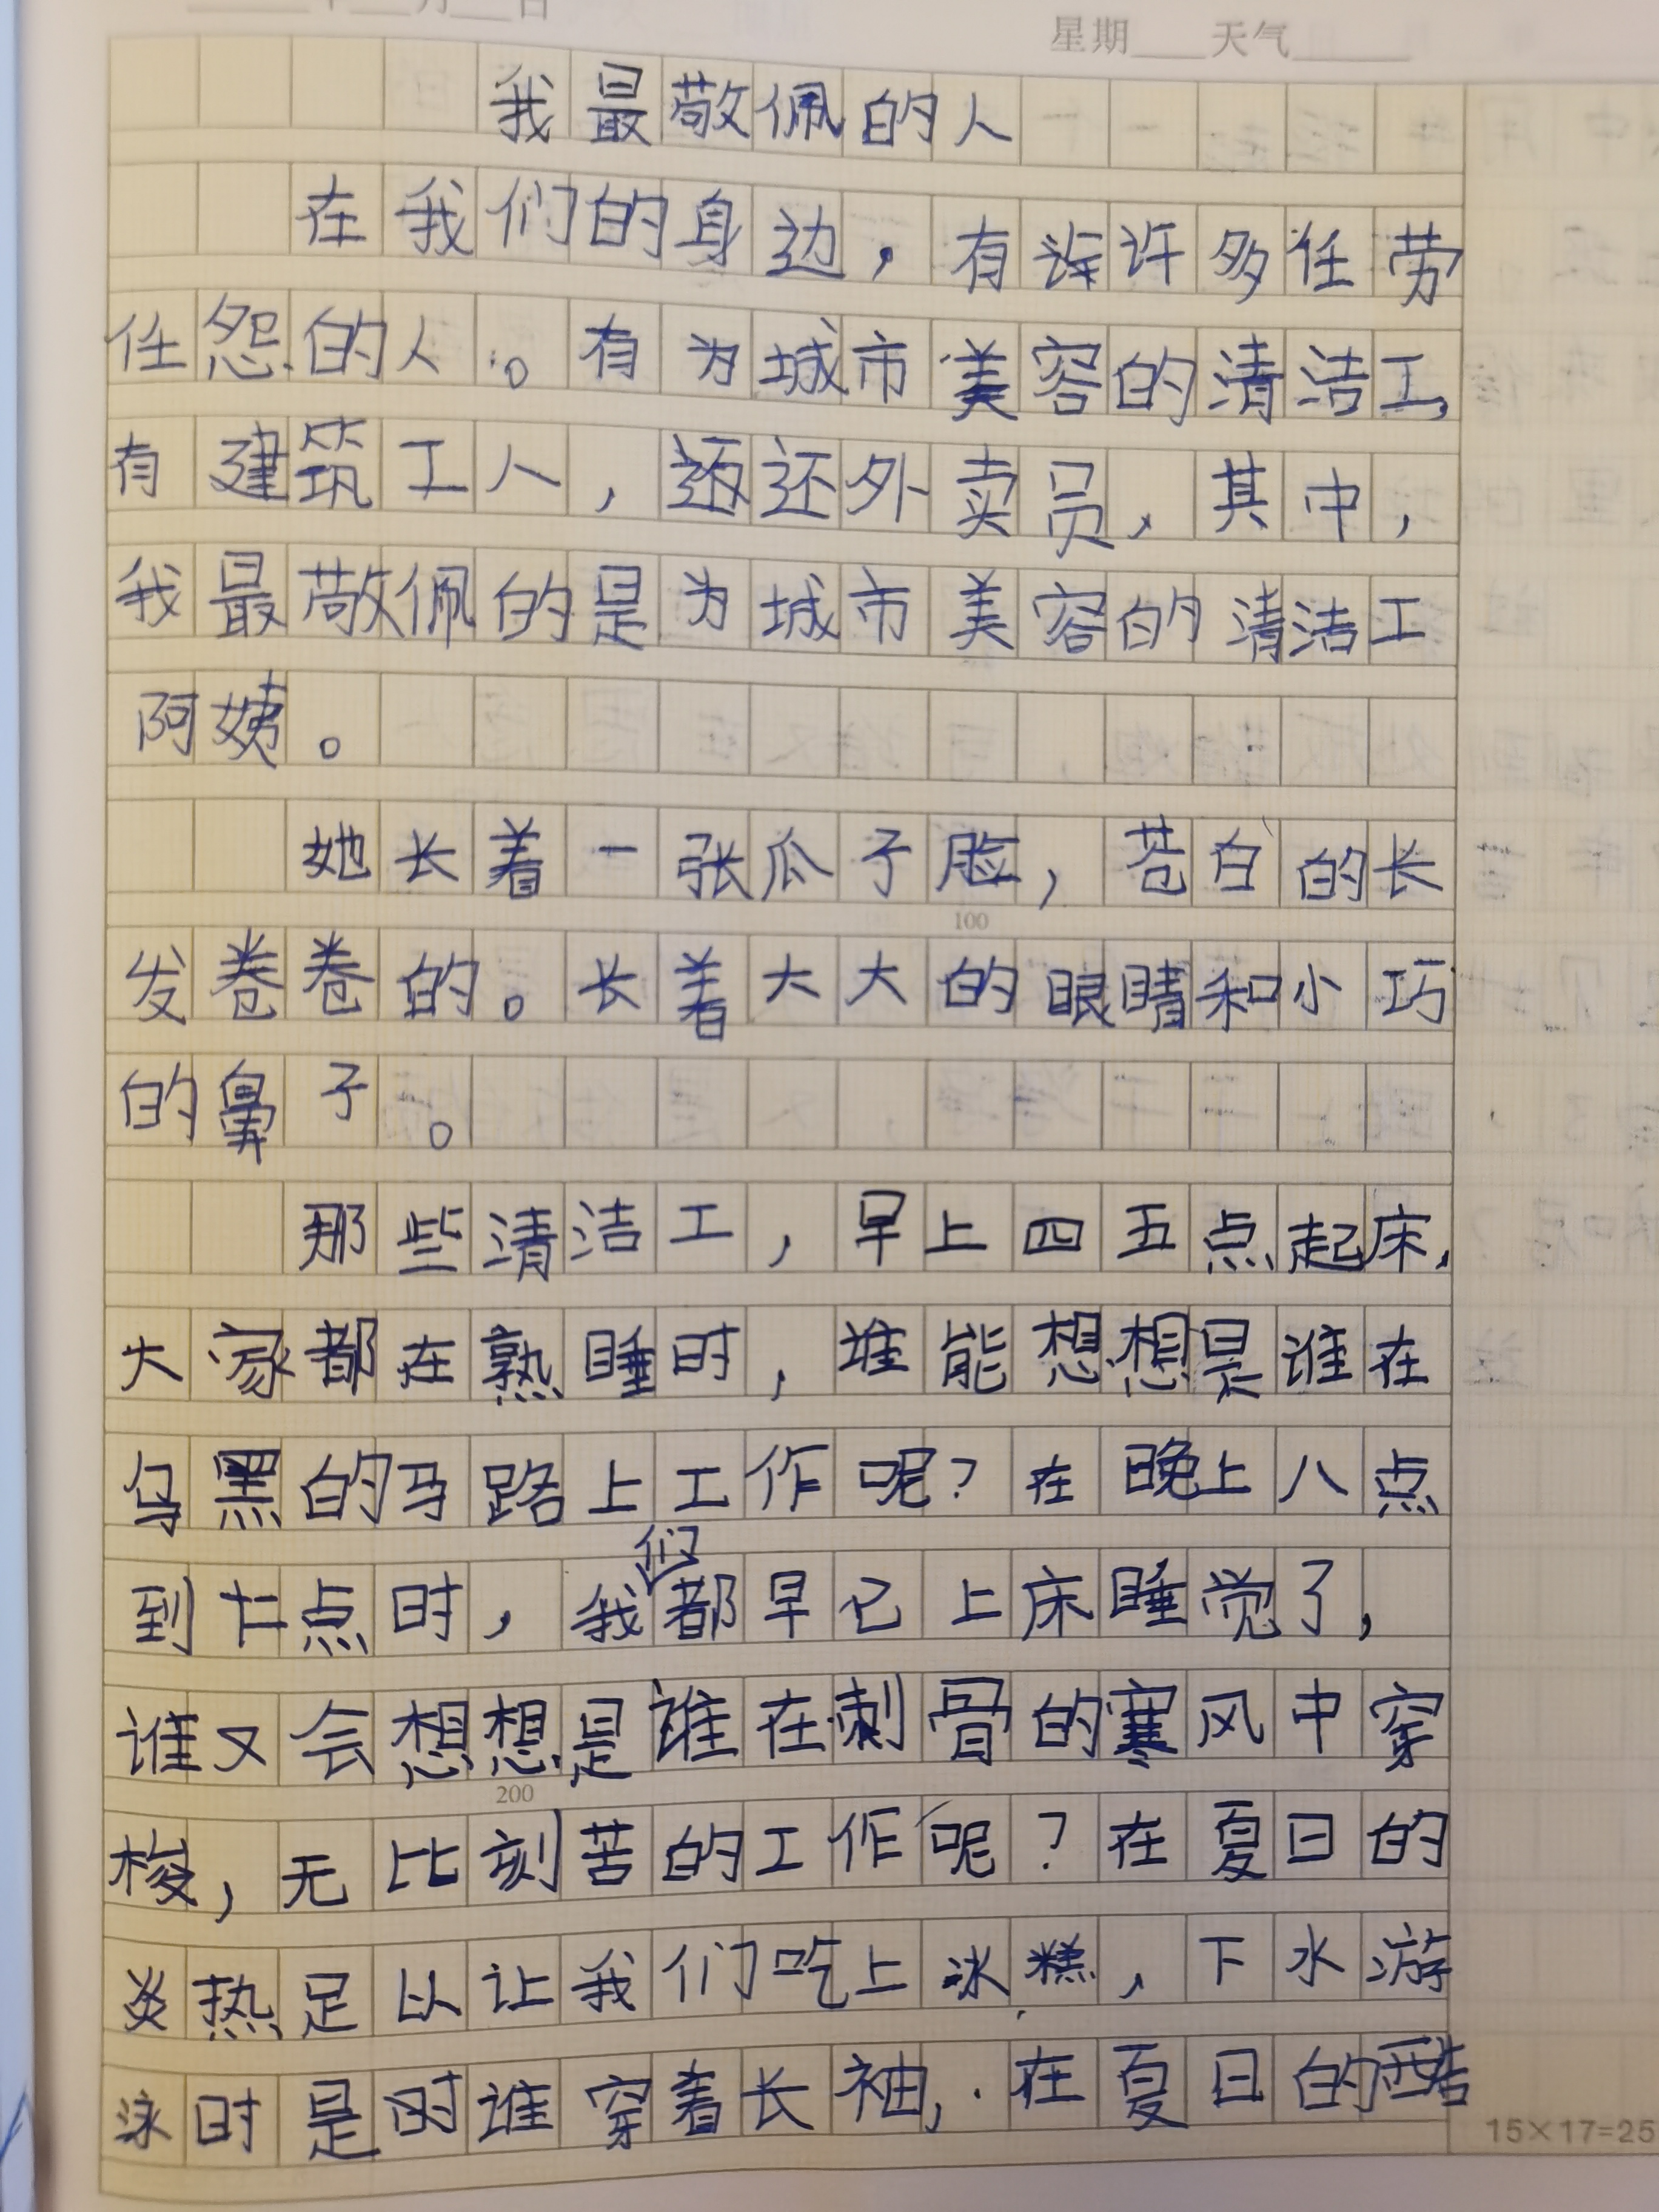 星期 天气
我最敬佩的人
在我们的身边，有许许多任劳
任怨的人。有为城市美容的清洁工，
有建筑工人，还外卖员，其中，
我最敬佩的是为城市美容的清洁工
阿姨。
她长着一张瓜子脸，苍白的长
100
发卷卷的。长着大大的眼睛和小巧
的鼻子。
那些清洁工，早上四五点起床，
大家都在熟睡时，谁能想想是谁在
乌黑的马路上工作呢？在晚上八点
到十点时，我们都早已上床睡觉了，
谁又会想想是谁在刺骨的寒风中穿
200
梭，无比刻苦的工作呢？在夏日的
炎热足以让我们吃上冰糕，下水游
泳时是时谁穿着长袖，在夏日的酷
15×17=25